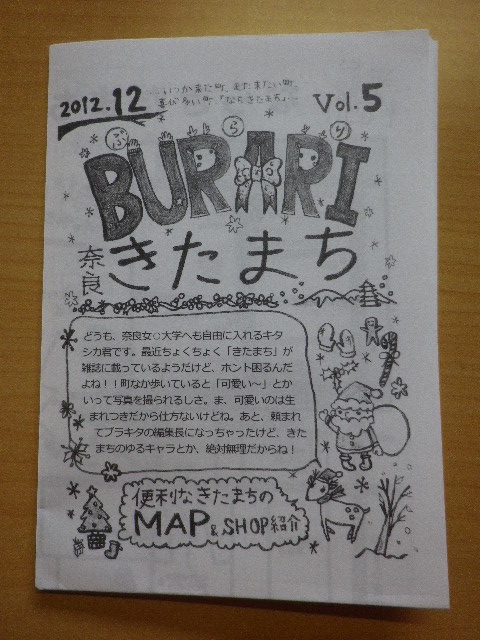 2012.12
…いつか来た町、また来たい町、
喜び多い町、「ならきたまち」…
Vol.5
ぶらり
BURARI
奈良きたまち
どうも、奈良女○大学へも自由に入れるキタ
シカ君です。最近ちょくちょく「きたまち」が
雑誌に載っているようだけど、ホント困るんだ
よね！！町なか歩いていると「可愛い～」とか
いって写真を撮られるしさ。ま、可愛いのは生
まれつきだから仕方ないけどね。あと、頼まれ
てブラキタの編集長になっちゃったけど、きた
まちのゆるキャラとか、絶対無理だからね！
便利なきたまちの
MAP & SHOP紹介